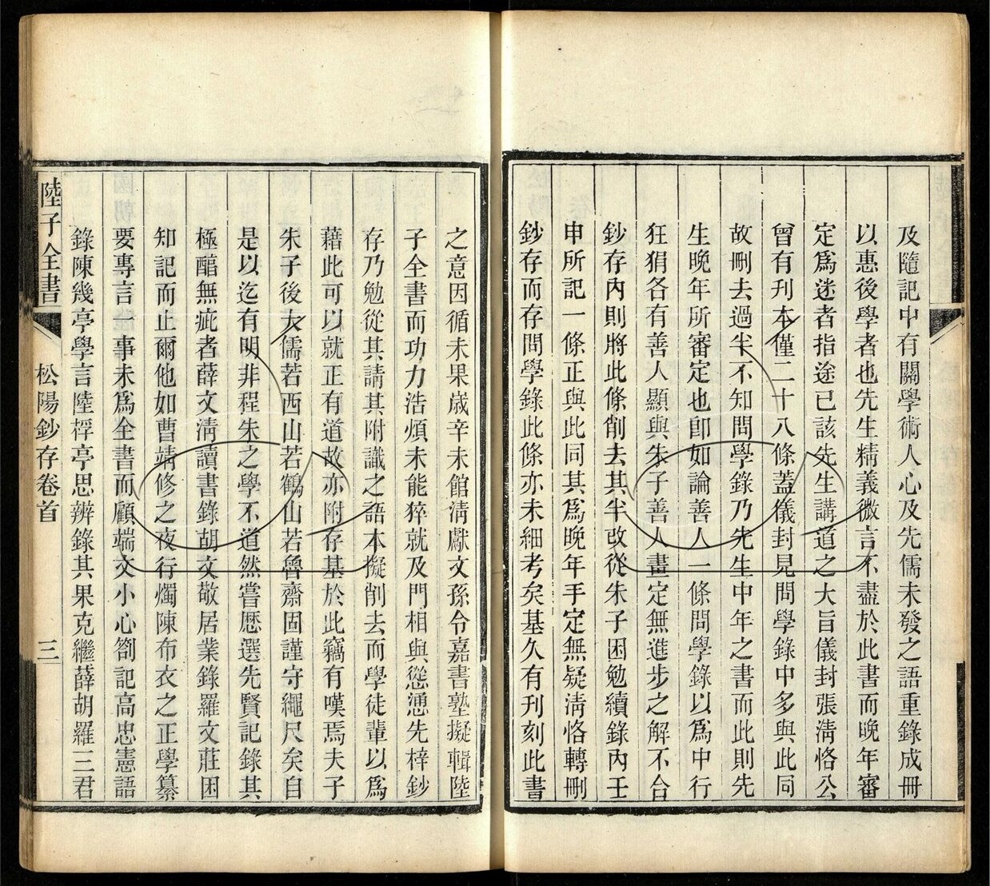 及隨記中有關學術人心及先儒未發之語重錄成冊
以惠後學者也先生精義微言不盡於此書而晚年審
定爲迷者指途已該先生講道之大旨儀封張淸恪公
曾有刊本僅二十八條蓋儀封見問學錄中多與此同
故刪去過半不知問學錄乃先生中年之書而此則先
生晚年所審定也卽如論善人一條問學錄以爲中行
狂狷各有善人顯與朱子善人畫定無進步之解不合
鈔存內則將此條削去其半改從朱子困勉續錄內壬
申所記一條正與此同其爲晚年手定無疑淸恪轉刪
鈔存而存問學錄此條亦未細考矣基久有刊刻此書
之意因循未果歲辛未館淸獻文孫令嘉書塾擬輯陸
子全書而功力浩煩未能猝就及門相與慫慂先梓鈔
存乃勉從其請其附識之語本擬削去而學徒輩以爲
藉此可以就正有道故亦附存基於此竊有嘆焉夫子
朱子後大儒若西山若鶴山若魯齋固謹守繩尺矣自
是以迄有明非程朱之學不道然嘗歷選先賢記錄其
極醕無疵者薛文淸讀書錄胡文敬居業錄羅文莊困
知記而止爾他如曹靖修之夜行燭陳布衣之正學纂
要專言一事未爲全書而顧端文小心劄記高忠憲語
錄陳幾亭學言陸桴亭思辨錄其果克繼薛胡羅三君
陸子全書 松陽鈔存卷首 三